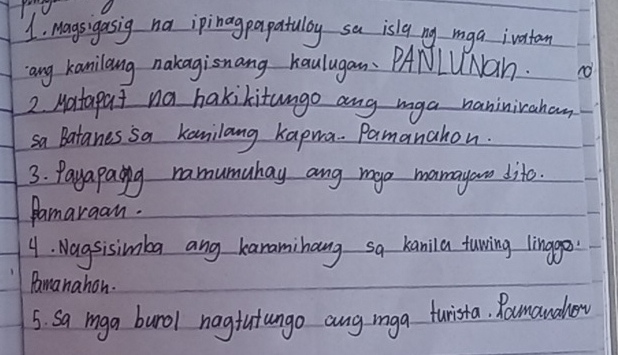 1. Magsigasig na ipinagpapatuloy sa isla ng mga ivatan
ang kanilang nakagisnang kaulugan. PANLUNan.
2. Matapat na hakikitungo ang mga naninirahan
sa Batanes sa kanilang kapwa. Pamanahon.
3. Payapang namumuhay ang mga mamayan dito.
Pamaraan.
4. Nagsisimba ang karamihang sa kanila tuwing linggo.
Pamanahon.
5. Sa mga burol nagtutungo ang mga turista. Pamanahon